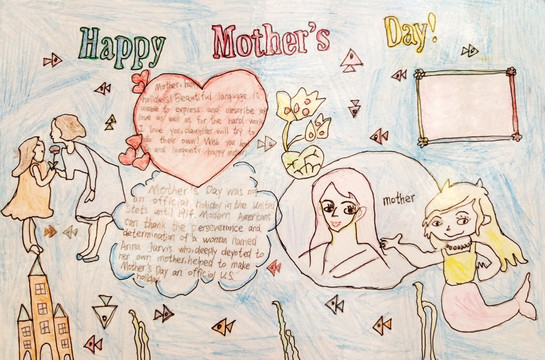 Happy Mother's Day!
Mother, hap
holidays! Beautiful language is
to express and describe
love as well as for the hard work
I love you, daughter will try to
do their own! Wish you
and
Mother's Day was not
an official holiday in the United
States until 1914. Modern Americans
can thank the perseverance and
determination of a woman named
Anna Jarvis who, deeply devoted to
her own mother, helped to make
Mother's Day an official U.S.
holiday.
mother